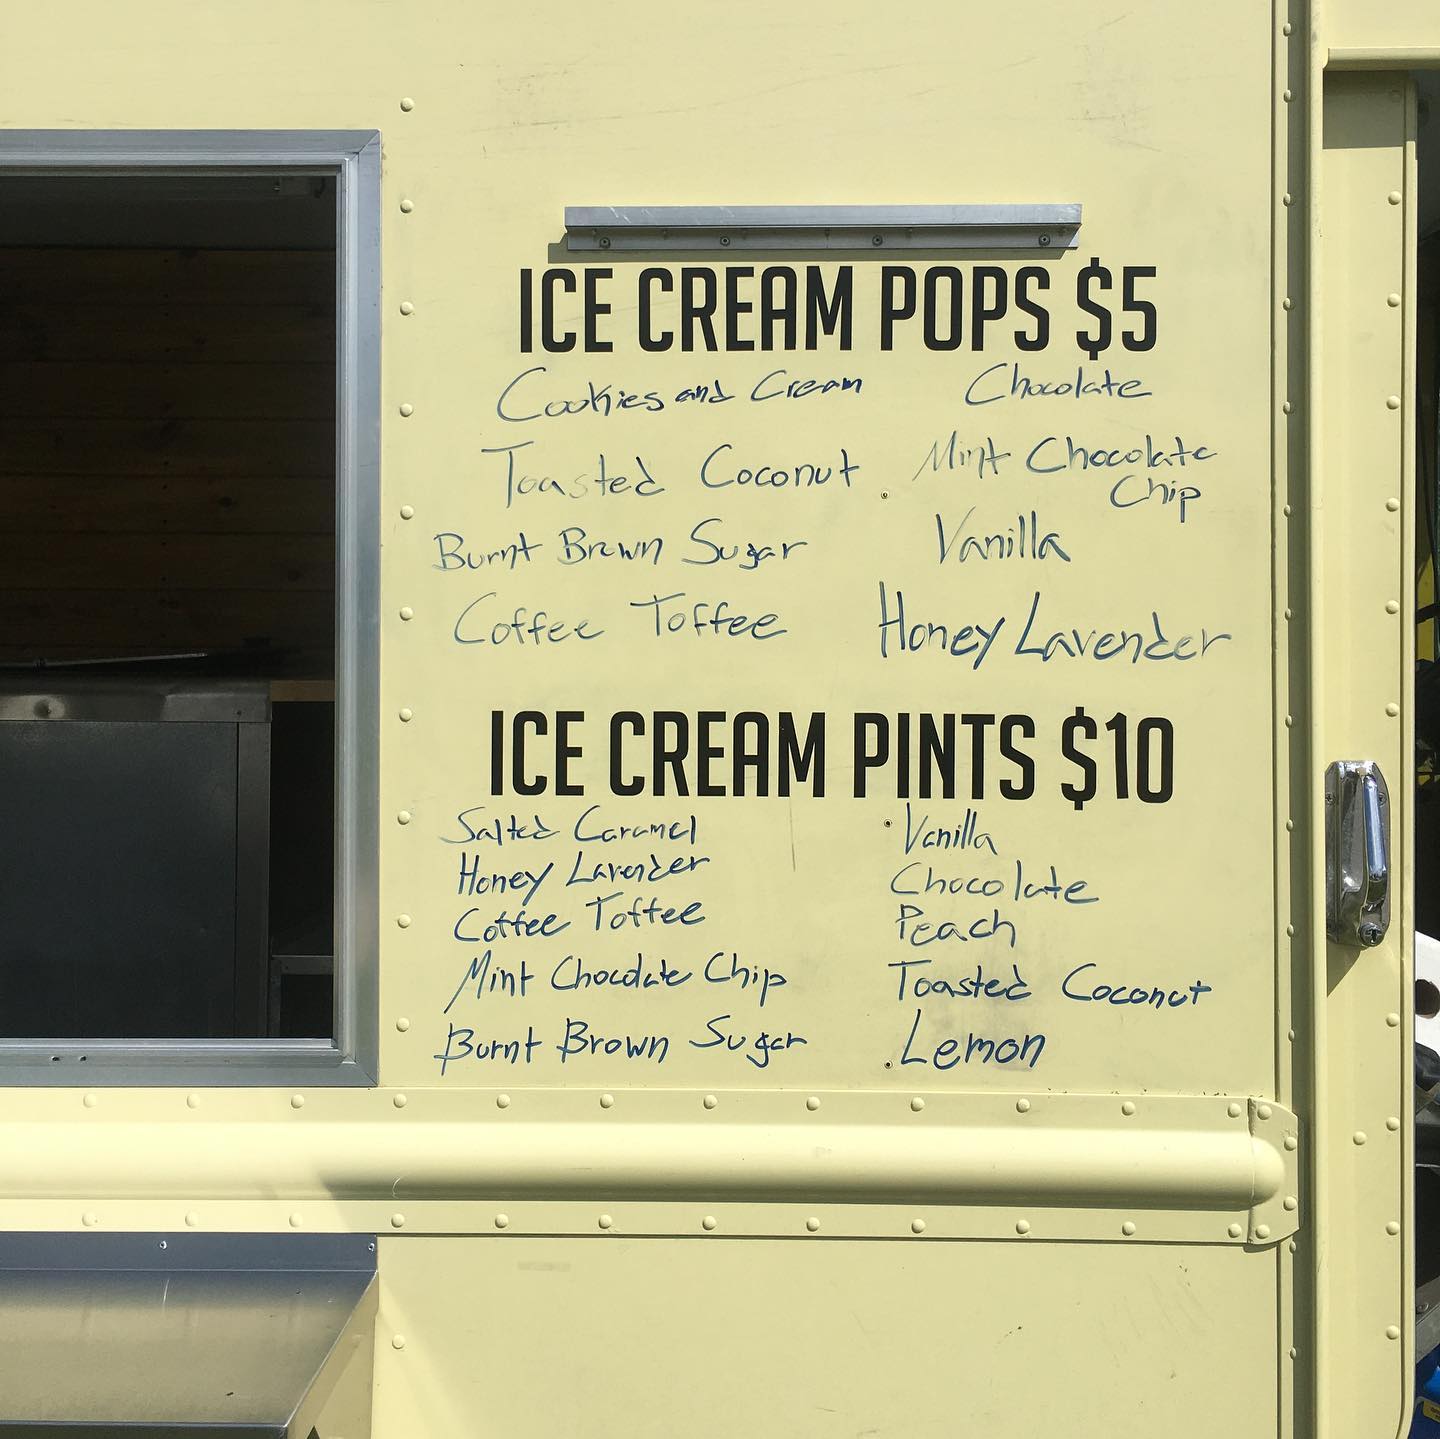 ICE CREAM POPS $5
Cookies and Cream
Toasted Coconut
Burnt Brown Sugar
Coffee Toffee
Chocolate
Mint Chocolate
Chip
Vanilla
Honey Lavender
ICE CREAM PINTS $10
Salted Caramel
Honey Lavender
Coffee Toffee
Mint Chocolate Chip
Burnt Brown Sugar
Vanilla
Chocolate
Peach
Toasted Coconut
Lemon